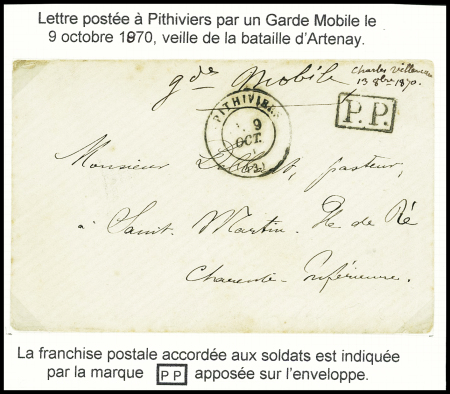 Lettre postée à Pithiviers par un Garde Mobile le
9 octobre 1870, veille de la bataille d'Artenay.
gde Mobile
Charles
13 8bre 1870.
P.P.
PITHIVIERS
9
OCT.
Monsieur pasteur,
à Saint Martin. Ile de Ré
Charente-Inférieure.
La franchise postale accordée aux soldats est indiquée
par la marque PP apposée sur l'enveloppe.